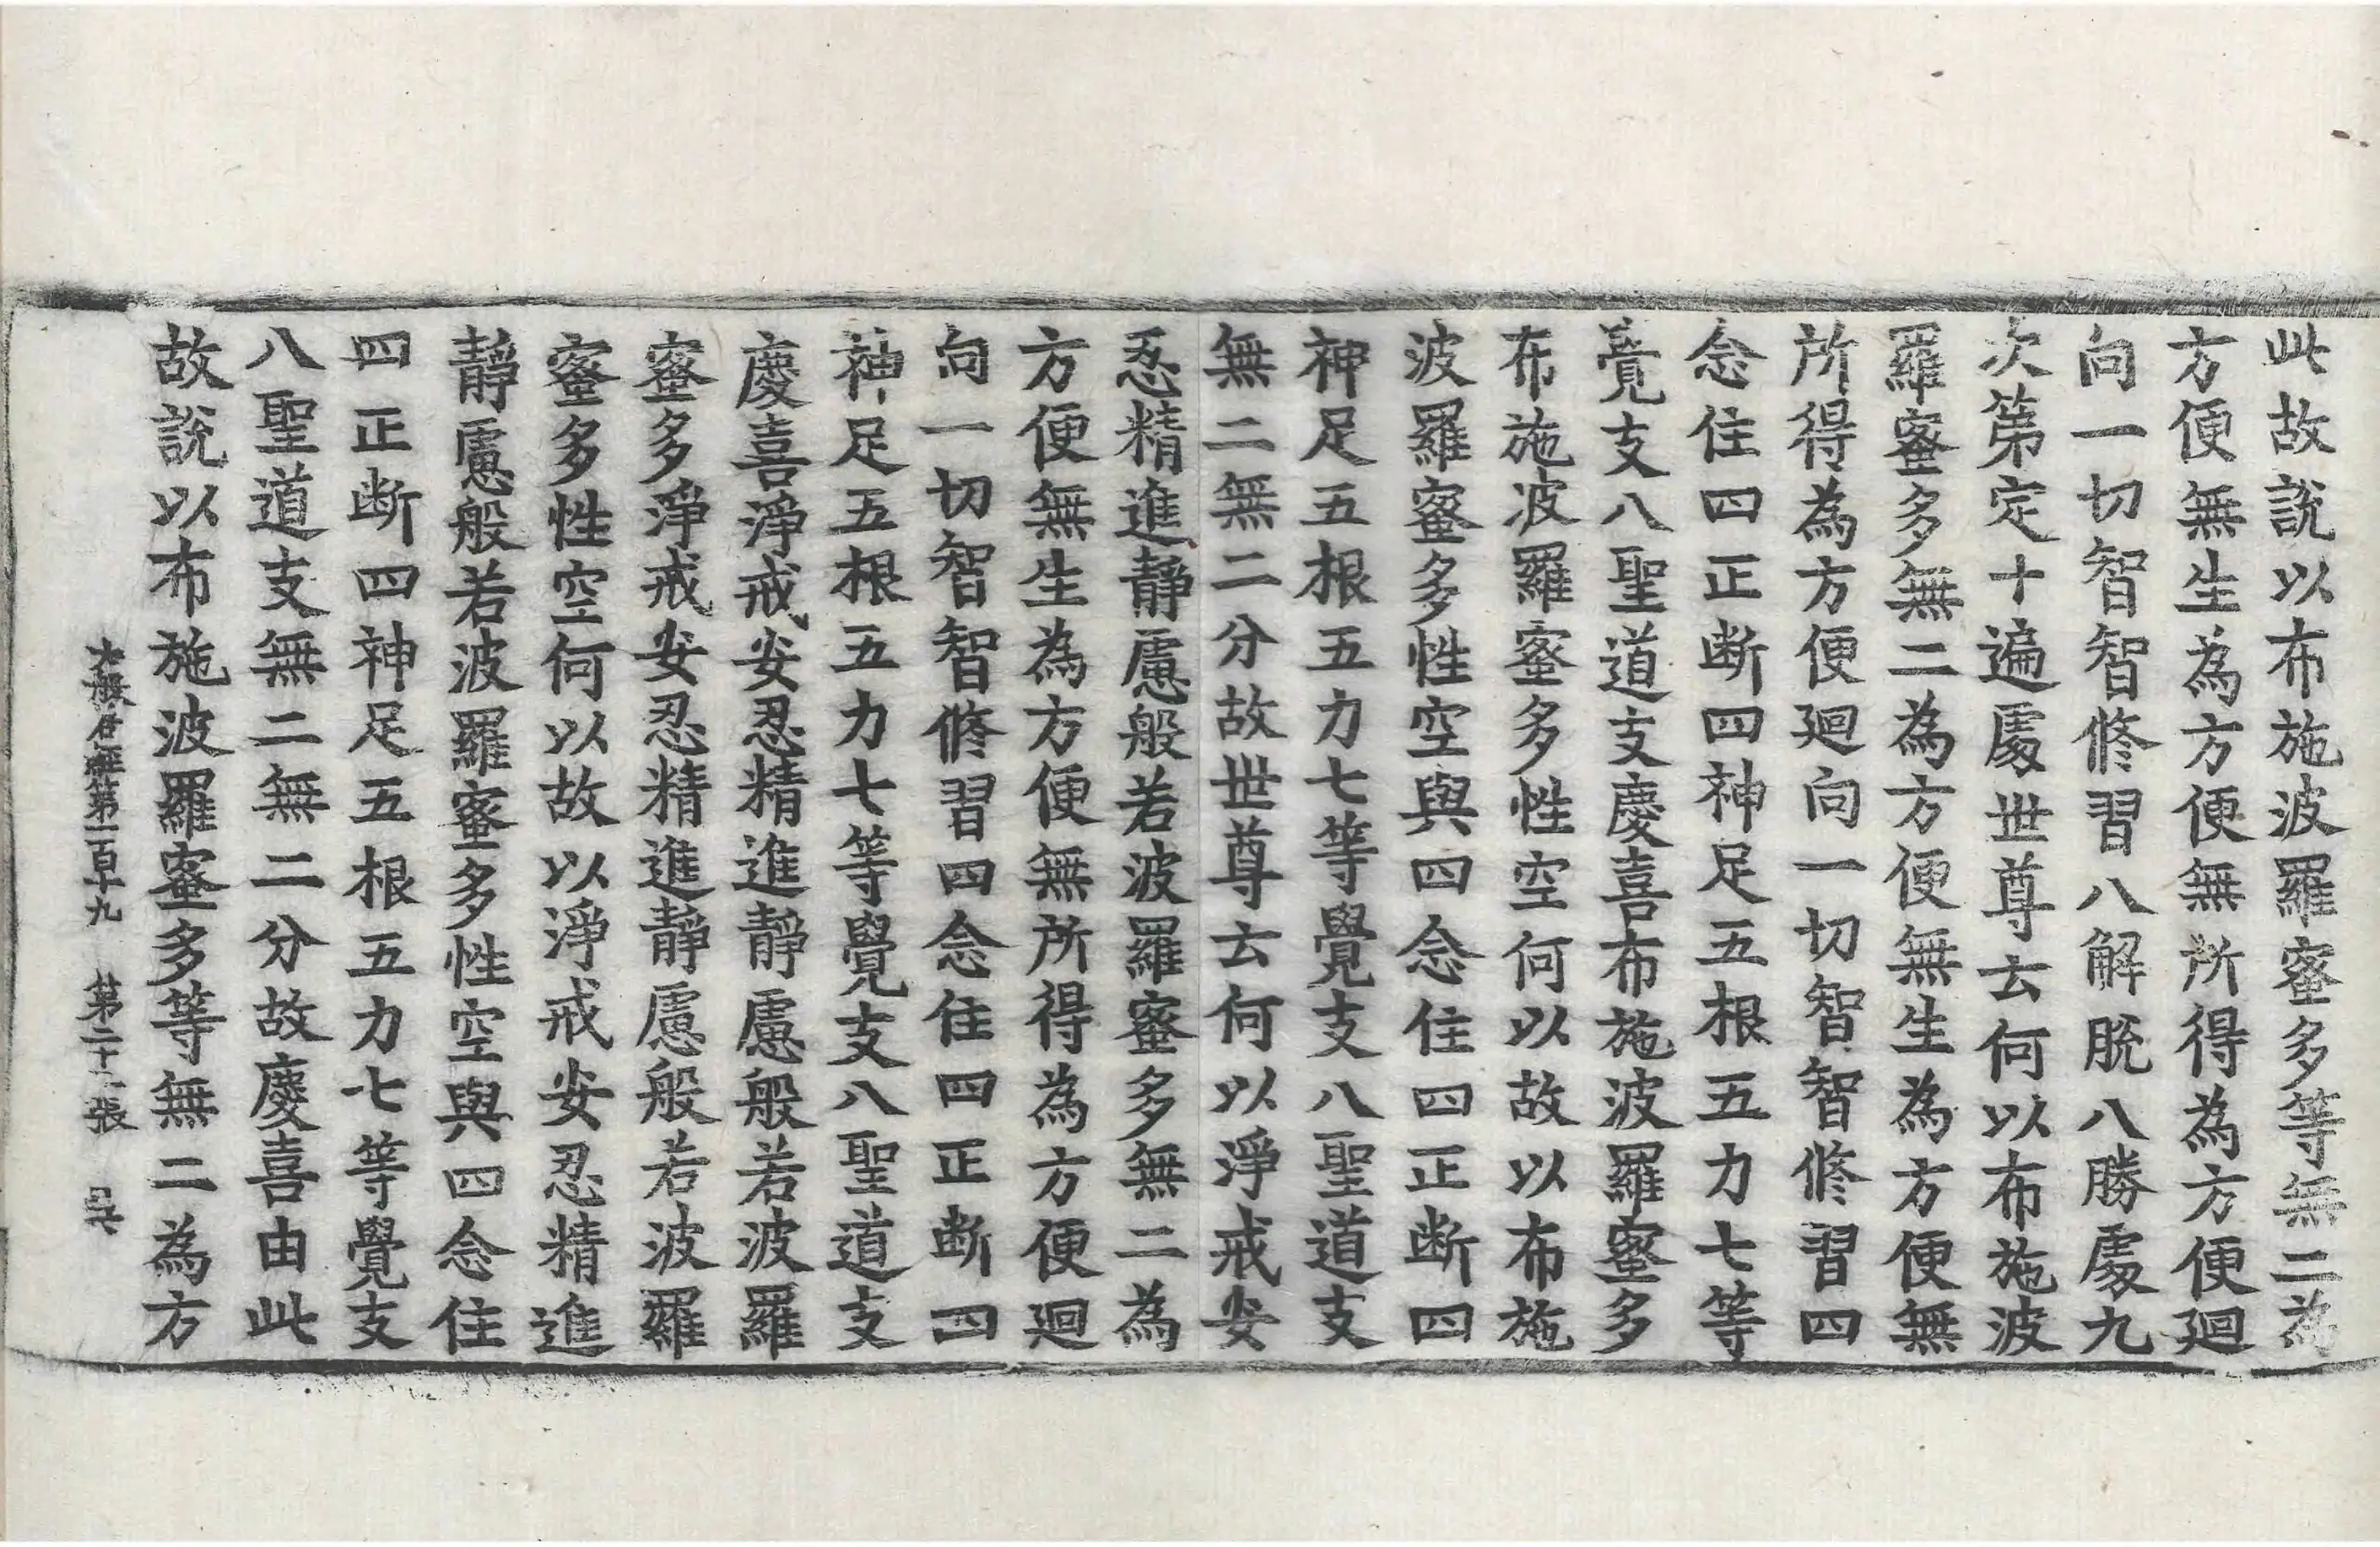 此故說以布施波羅蜜多等無二為
方便無生為方便無所得為方便迴
向一切智智修習八解脫八勝處九
次第定十遍處世尊云何以布施波
羅蜜多無二為方便無生為方便無
所得為方便迴向一切智智修習四
念住四正断四神足五根五力七等
覺支八聖道支慶喜布施波羅蜜多
布施波羅蜜多性空何以故以布施
波羅蜜多性空與四念住四正断四
神足五根五力七等覺支八聖道支
無二無二分故世尊云何以淨戒安
忍精進靜慮般若波羅蜜多無二為
方便無生為方便無所得為方便迴
向一切智智修習四念住四正断四
神足五根五力七等覺支八聖道支
慶喜淨戒安忍精進靜慮般若波羅
蜜多淨戒安忍精進靜慮般若波羅
蜜多性空何以故以淨戒安忍精進
靜慮般若波羅蜜多性空與四念住
四正断四神足五根五力七等覺支
八聖道支無二無二分故慶喜由此
故說以布施波羅蜜多等無二為方
大般若經第一百十九 第二十張